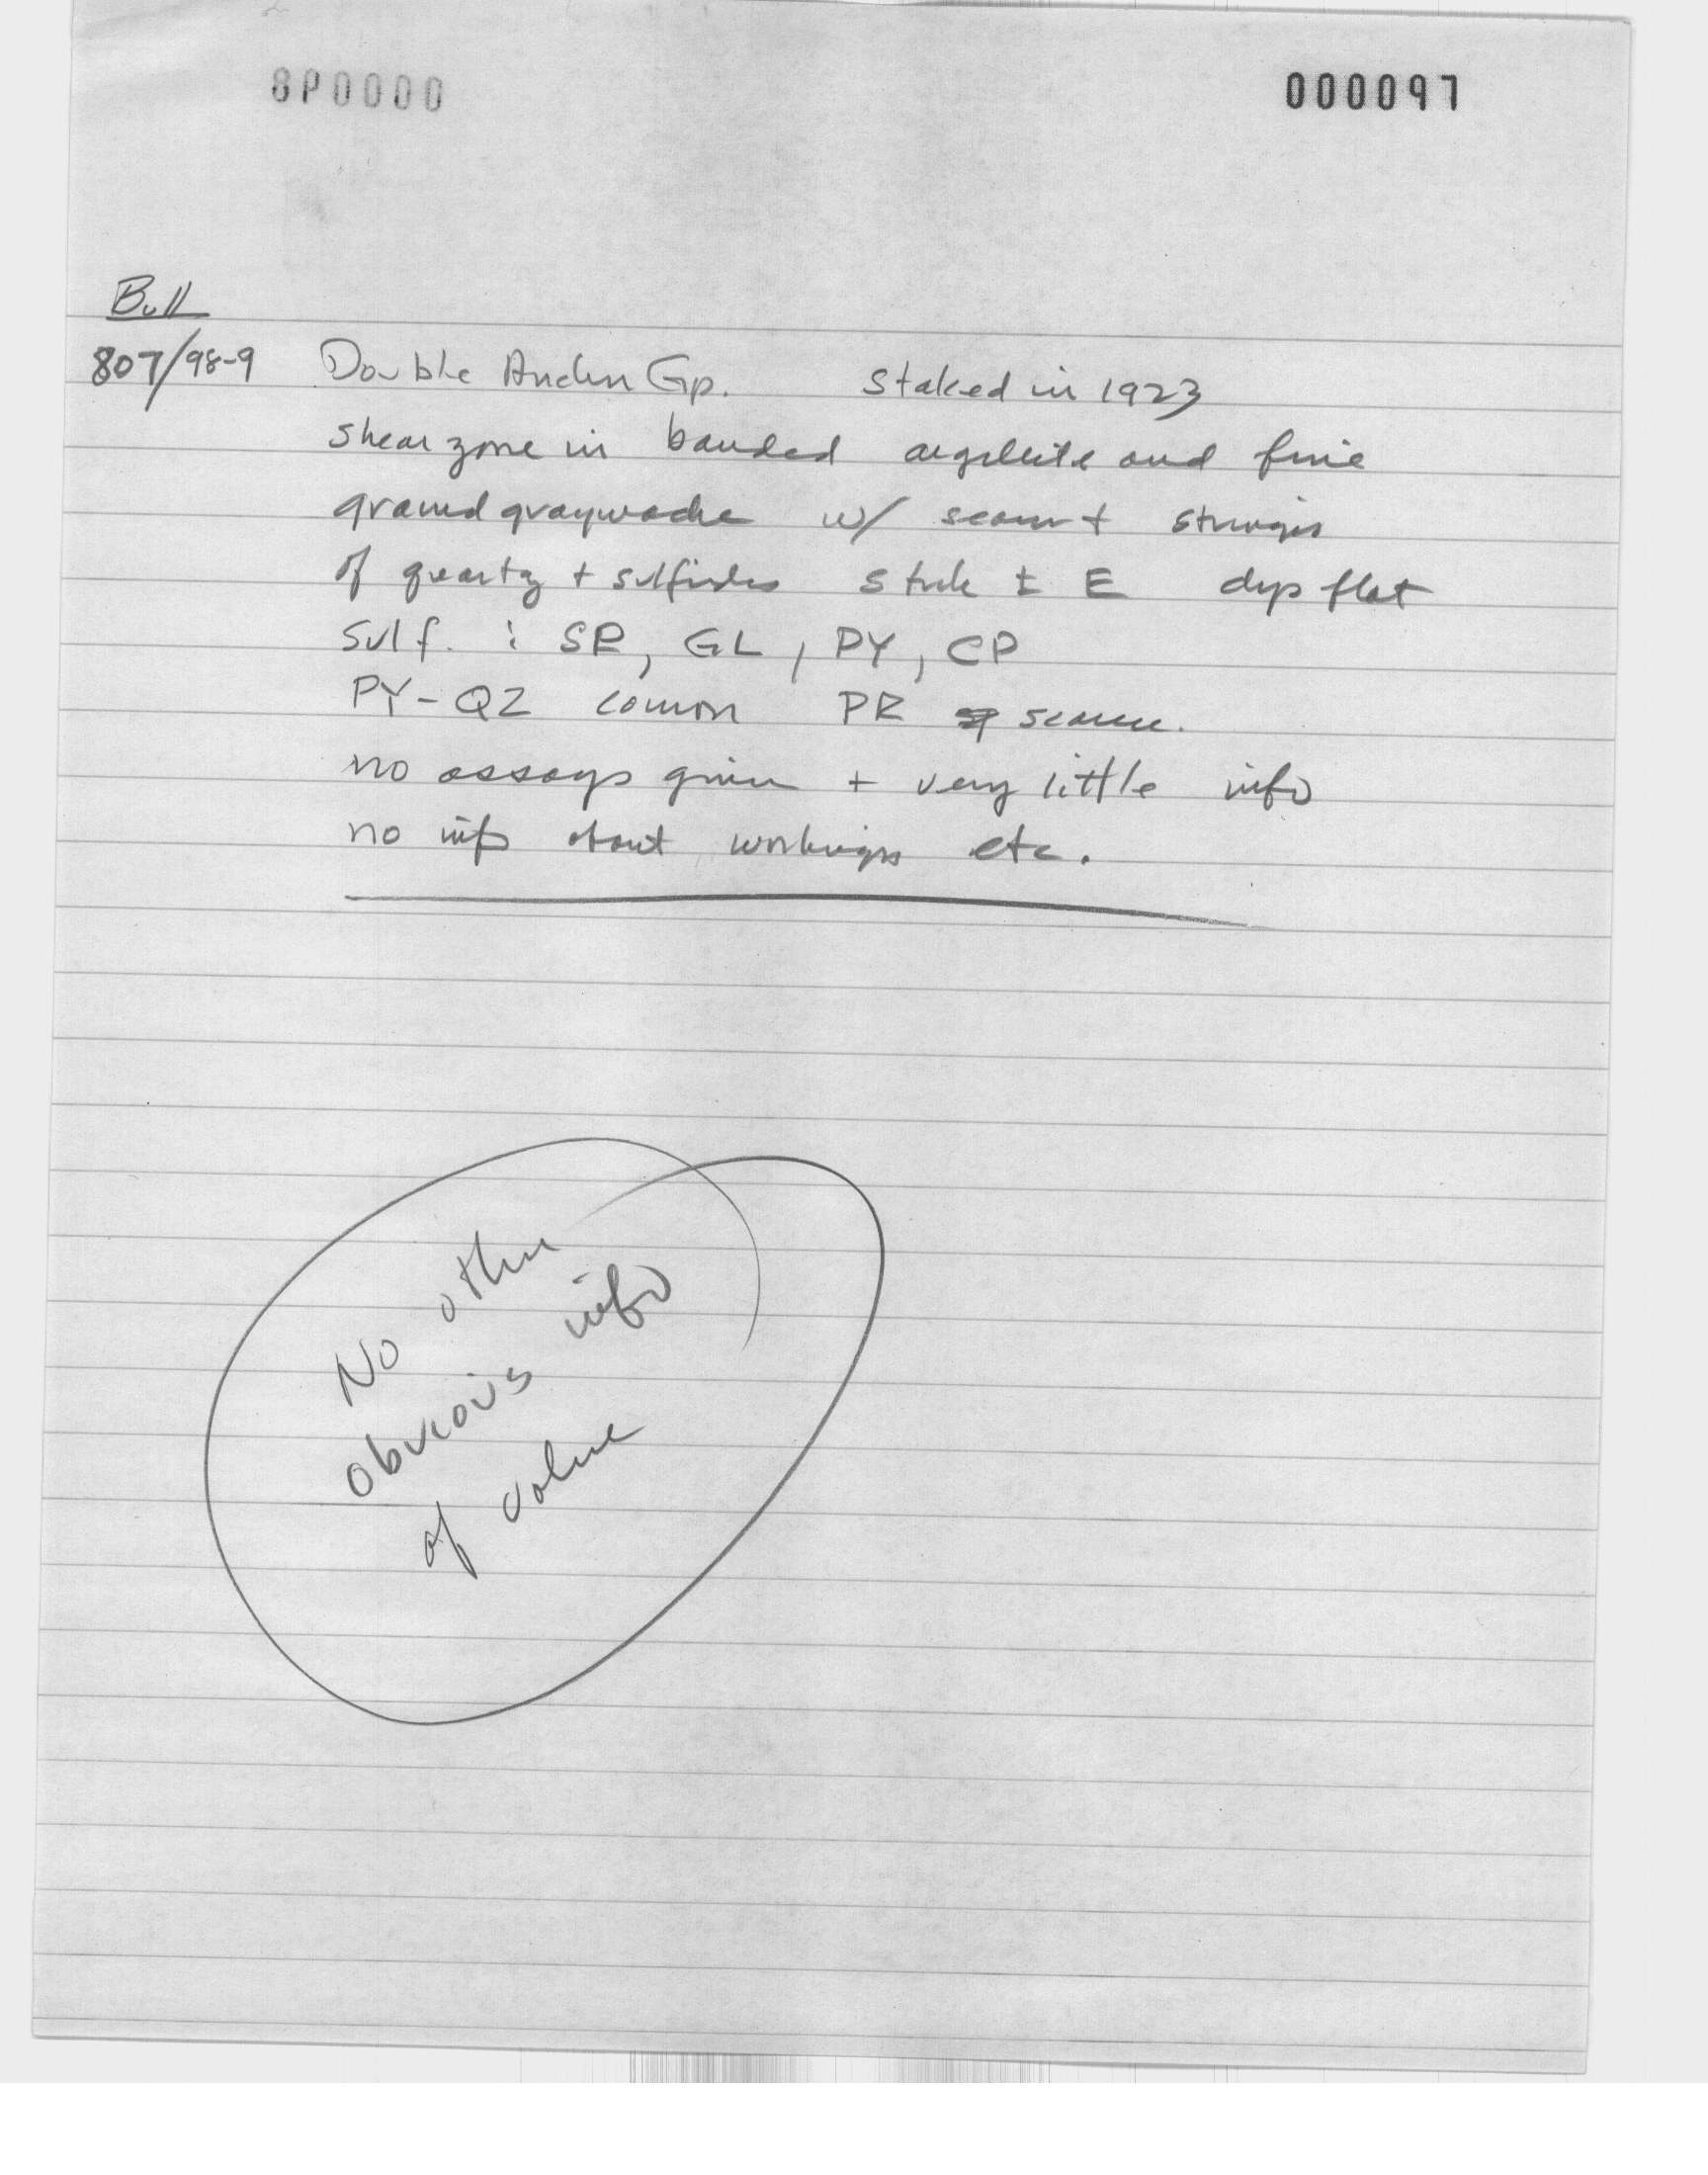 000097
Bull
807/98-9 Double Anchor Gp. Staked in 1923
shear zone in banded argillite and fine
grained graywacke w/ seams + stringers
of quartz + sulfides strike ± E dips flat
Sulf. : SP, GL, PY, CP
PY-QZ common PR scarce.
no assays given + very little info
no info about workings etc.
No other
obvious info
of value